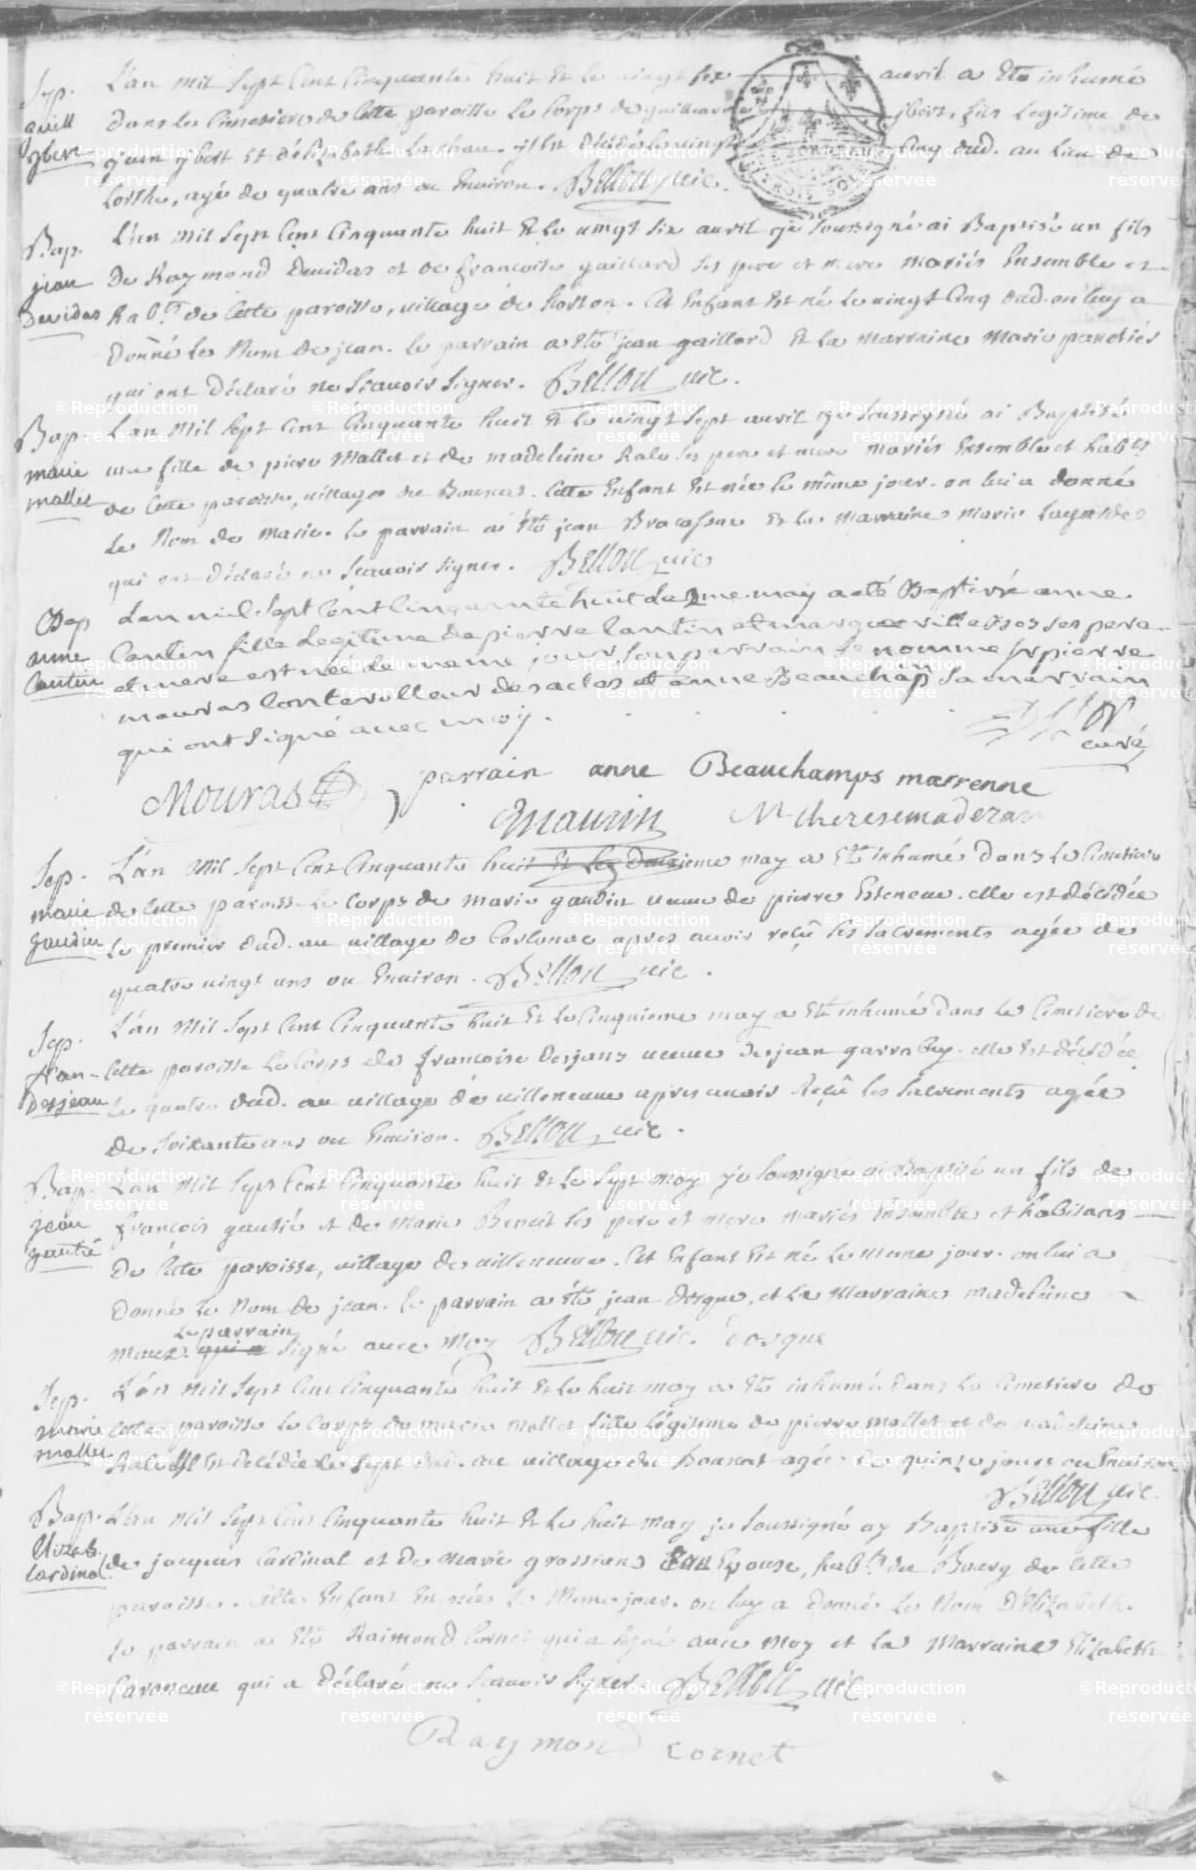 Sep.
guill
jbert
L'an mil sept cent cinquante huit et le vingt six avril a eté inhumé
dans le cimetiere de cette paroisse le corps de guilleaume jbert, fils legitime de
jean jbert et d'elisabethe Lachau. il est décédé le vingt cinq dud. au lieu de
agé de quatre ans ou environ. Bellou vic.
Bap.
jean
Devidas
L'an mil sept cent cinquante huit et le vingt six avril je soussigné ai Baptisé un fils
De Raymond Devidas et de francoise gaillard ses pere et mere mariés Ensemble et
hab.ts de cette paroisse, village de . Cet Enfant Est né le vingt cinq dud. on luy a
Donné le Nom de jean. le parrain a eté jean gaillard Et la marraine Marie
qui ont déclaré ne scauoir signer. Bellou vic.
Bap.
marie
mallet
L'an mil sept cent cinquante huit et le vingt sept avril je soussigné ai Baptisé
une fille de piere Mallet et de madeleine Ralo ses pere et mere mariés Ensemble et hab.ts
de cette paroisse, village de . Cette Enfant Est née le même jour. on lui a donné
le Nom de Marie. le parrain a eté jean Et la Marraine Marie
qui ont déclaré ne scauoir signer. Bellou vic
Bap
anne
Cantin
Lan mil sept cent cinquante huit le 2me may a eté Baptisée anne
Cantin fille Legitime de pierre Cantin et ses pere
et mere est née le meme jour son parrain se nomme sr pierre
mouras Conterolleur des actes et anne Beauchap sa marrain
qui ont signé avec moy.
curé
Mouras parrain anne Beauchamps marrenne
Maurin
Sep.
marie
gaudin
L'an mil sept cent cinquante huit et le deuxieme may a eté inhumé dans le cimetiere
de cette paroisse le corps de marie gaudin veuve de pierre Esteneau. elle est décédée
le premier dud. au village de apres avoir reçû les sacrements agée de
quatre vingt ans ou Environ. Bellou vic.
Sep.
fran-
Desjean
L'an mil sept cent cinquante huit Et le cinquieme may a eté inhumé dans le cimetiere de
cette paroisse le corps de francoise Desjans veuve de jean . elle Est décédée
le quatre dud. au village de villeneuve apres avoir reçû les sacrements agée
de soixante ans ou Environ. Bellou vic.
Bap.
jean
gautié
L'an mil sept cent cinquante huit et le sept may je soussigné ai Baptisé un fils de
françois gautié et de Marie Benoit ses pere et mere mariés Ensemble et habitans
De cette paroisse, village de villeneuve. Cet Enfant Est né le meme jour. on lui a
Donné le Nom de jean. le parrain a eté jean , et la Marraine madeleine
le parrain
qui a signé avec Moy Bellou vic.
Sep.
marie
mallet
L'an mil sept cent cinquante huit et le huit may a eté inhumé dans le cimetiere de
cette paroisse le corps de marie mallet fille légitime de pierre mallet et de madeleine
Ralo. Est décédée le sept dud. au village de agée de quinze jours ou Environ
Bellou vic.
Bap.
Elizab.
Cardinal
L'an mil sept cent cinquante huit et le huit may je soussigné ay Baptisé une fille
de jacques Cardinal et de Marie son Epouse, hab.ts du Bourg de cette
paroisse. cette Enfant Est née le Meme jour. on luy a donné le Nom D'Elizabeth.
le parrain a eté Raimond Cornet qui a signé avec Moy et la Marraine Elizabeth
qui a déclaré ne scauoir signer. Bellou vic.
Raymond cornet